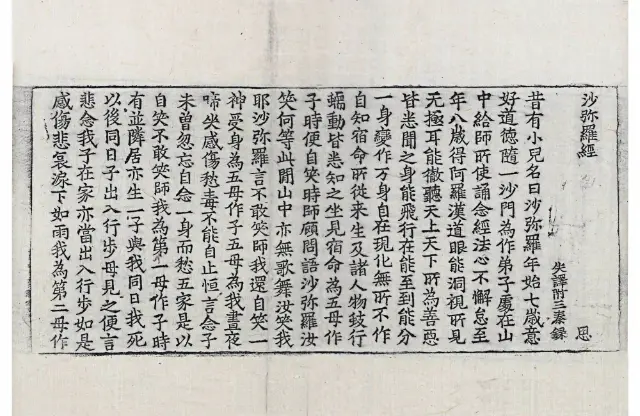 沙弥羅經 恩
失譯附三秦録
昔有小兒名曰沙弥羅年始七歲意
好道德隨一沙門為作弟子處在山
中給師所使誦念經法心不懈怠至
年八歲得阿羅漢道眼能洞視所見
无極耳能徹聽天上天下所為善惡
皆悉聞之身能飛行在能至到能分
一身變作万身自在現化無所不作
自知宿命所從来生及諸人物蚑行
蠕動皆悉知之坐見宿命為五母作
子時便自笑時師顧問語沙弥羅汝
笑何等此閒山中亦無歌舞汝笑我
耶沙弥羅言不敢笑師我還自笑一
神受身為五母作子五母為我晝夜
啼坐感傷愁毒不能自止恒言念子
未曾忽忘自念一身而愁五家是以
自笑不敢笑師我為第一母作子時
有並隣居亦生一子與我同日我死
以後同日子出入行步母見之便言
悲念我子在家亦當出入行步如是
感傷悲哀淚下如雨我為第二母作